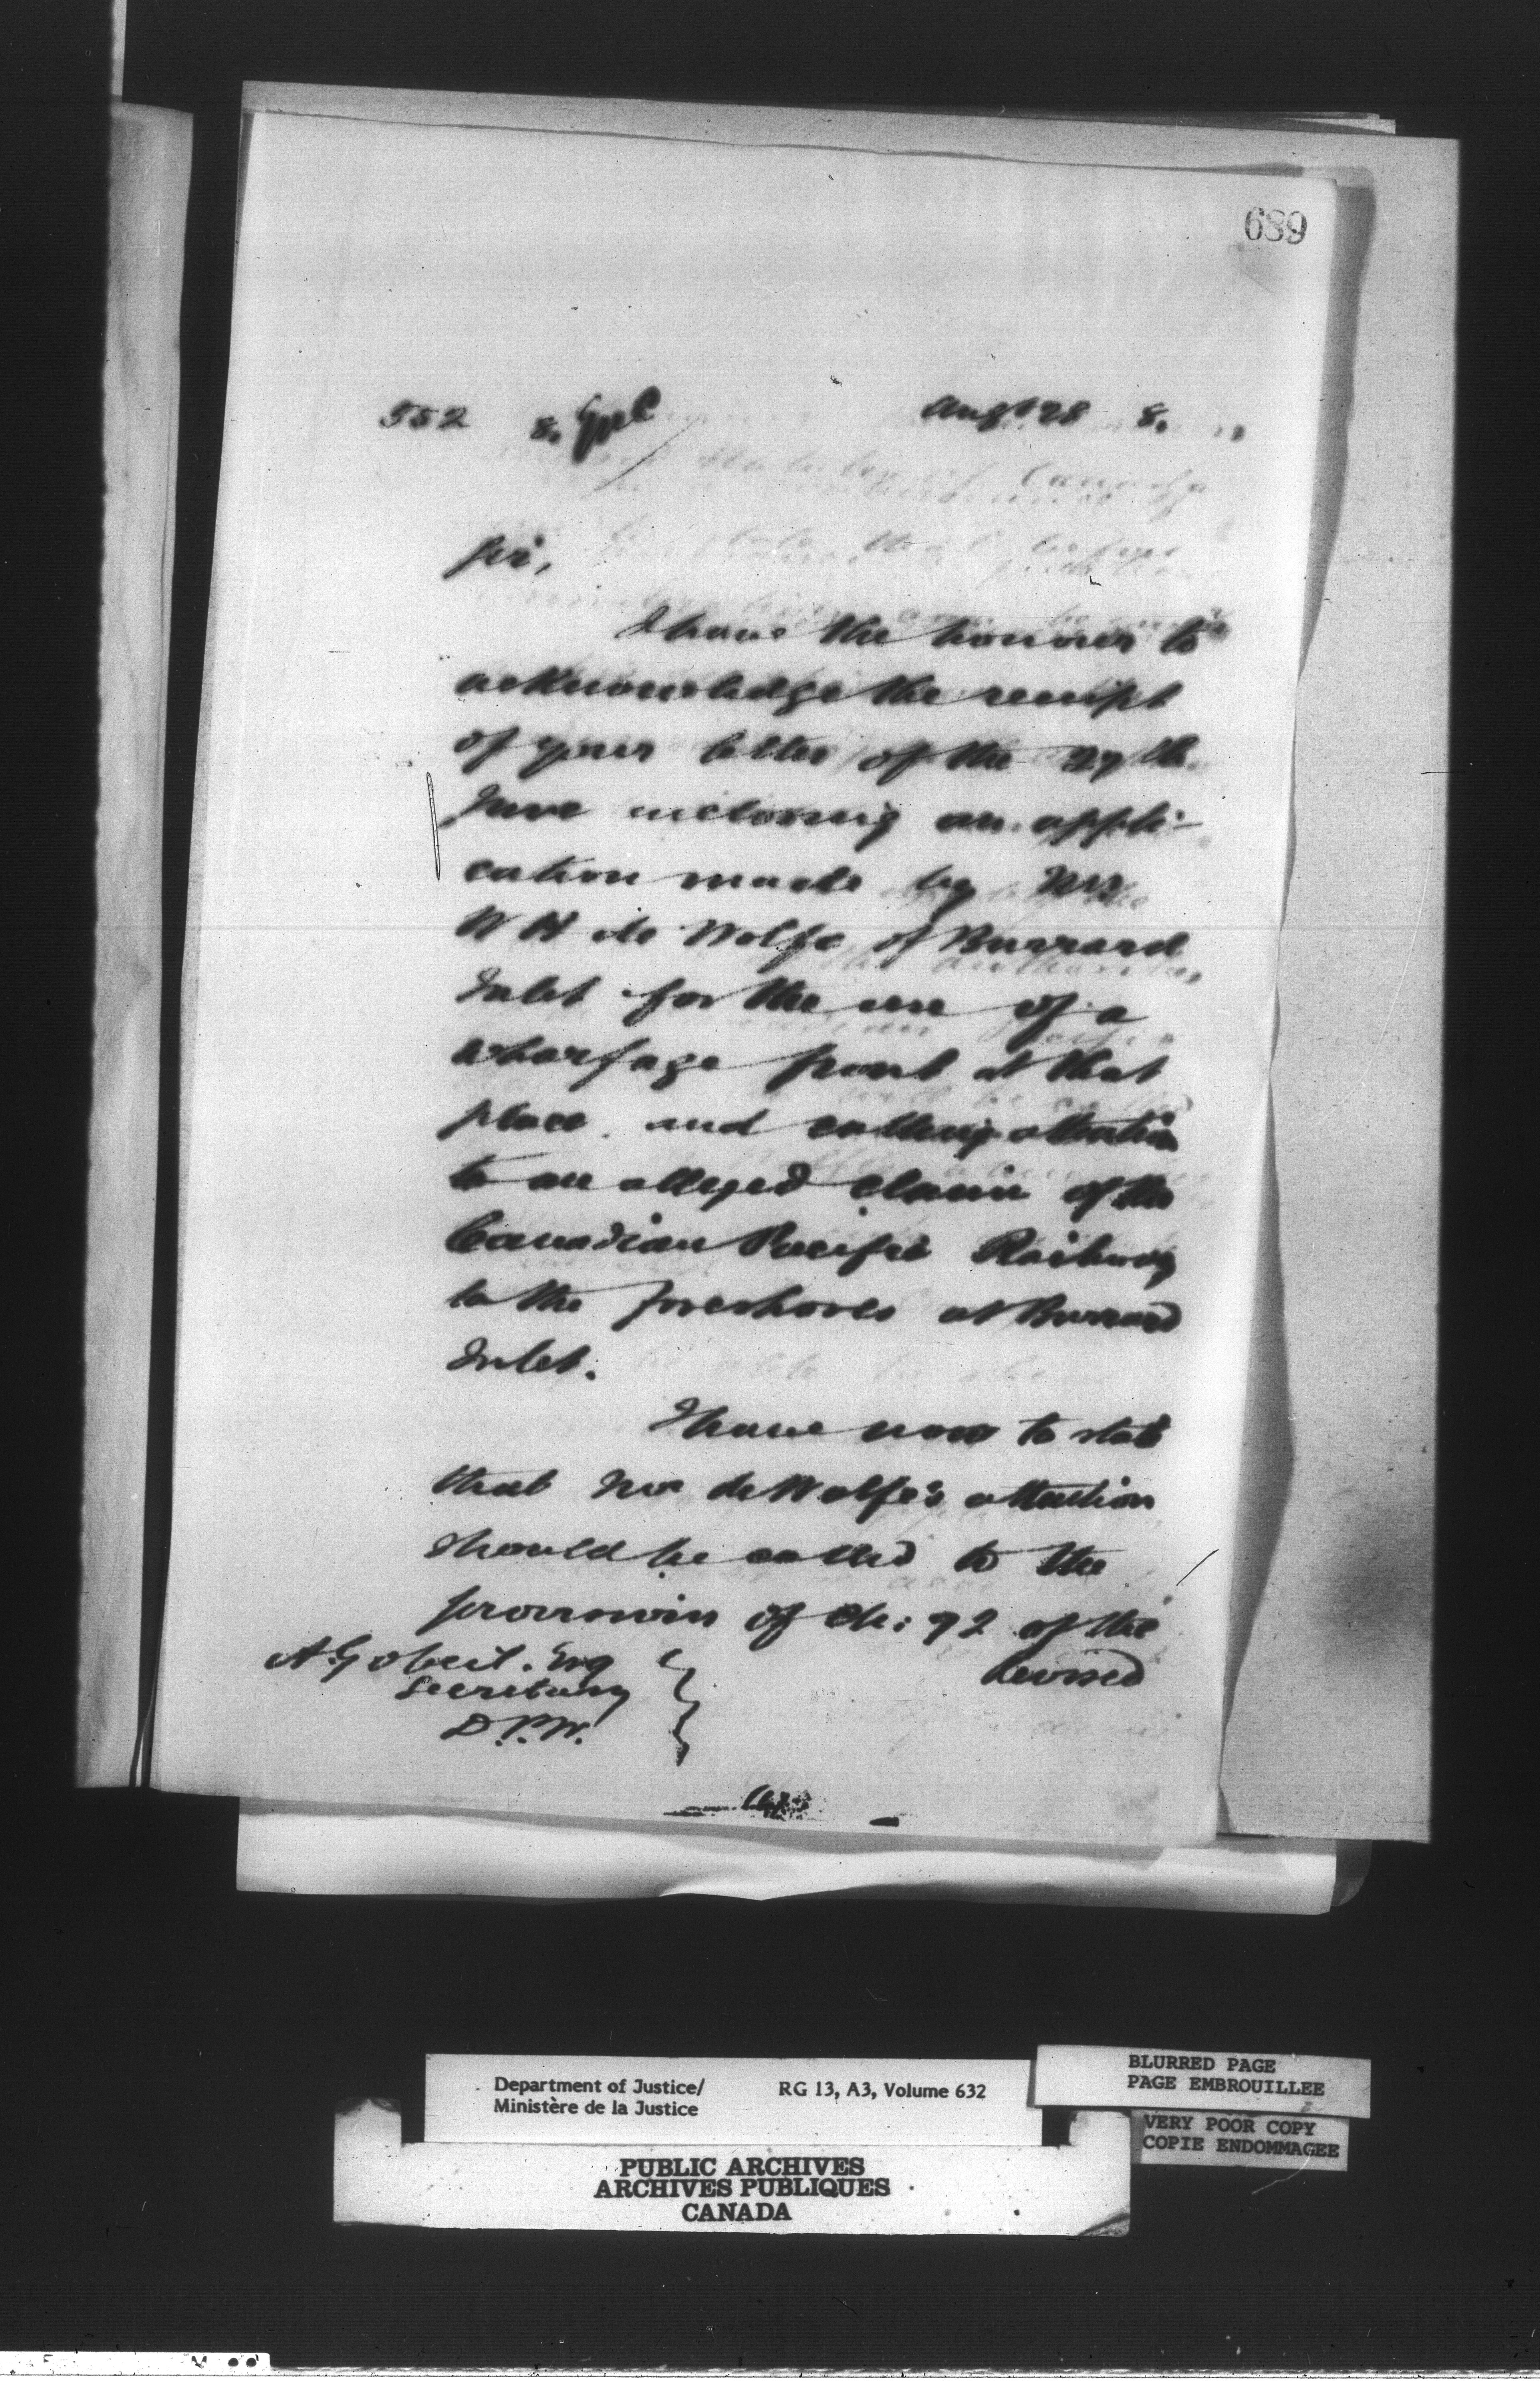 689
552
Augt 28 8.
Sir,
I have the honour to
acknowledge the receipt
of your letter of the 27th
June inclosing an appli-
cation made by Mr
W H de Wolfe of Burrard
Inlet for the use of a
wharfage front at that
place and calling attention
to an alleged claim of the
Canadian Pacific Railway
to the foreshores at Burrard
Inlet.
I have now to state
that Mr de Wolfe's attention
should be called to the
provisions of Ch: 92 of the
Revised
A. Gobeil. Esq
Secretary
D.P.W.
Department of Justice/
Ministère de la Justice
RG 13, A3, Volume 632
BLURRED PAGE
PAGE EMBROUILLEE
VERY POOR COPY
COPIE ENDOMMAGEE
PUBLIC ARCHIVES
ARCHIVES PUBLIQUES
CANADA